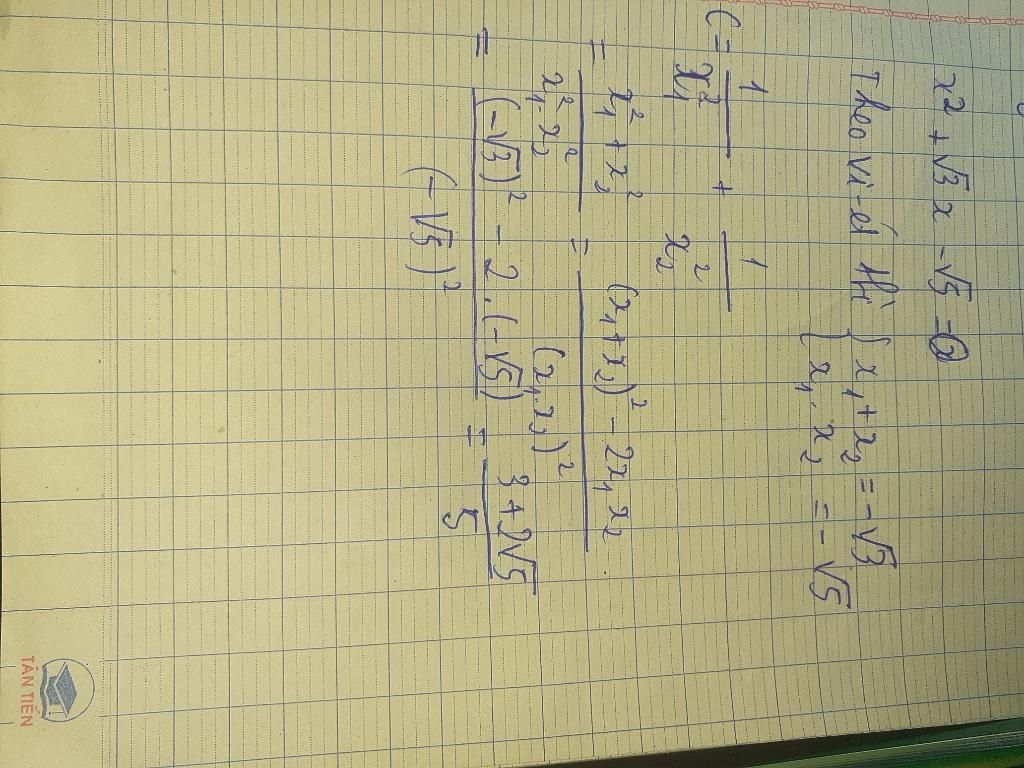 x² + √3 x - √5 = 0
Theo Vi-ét thì { x₁ + x₂ = -√3
x₁ . x₂ = -√5
C = 1/x₁² + 1/x₂²
= (x₁² + x₂²)/(x₁² . x₂²) = ((x₁ + x₂)² - 2x₁x₂)/(x₁.x₂)²
= ((-√3)² - 2.(-√5))/(-√5)² = (3+2√5)/5
TÂN TIẾN